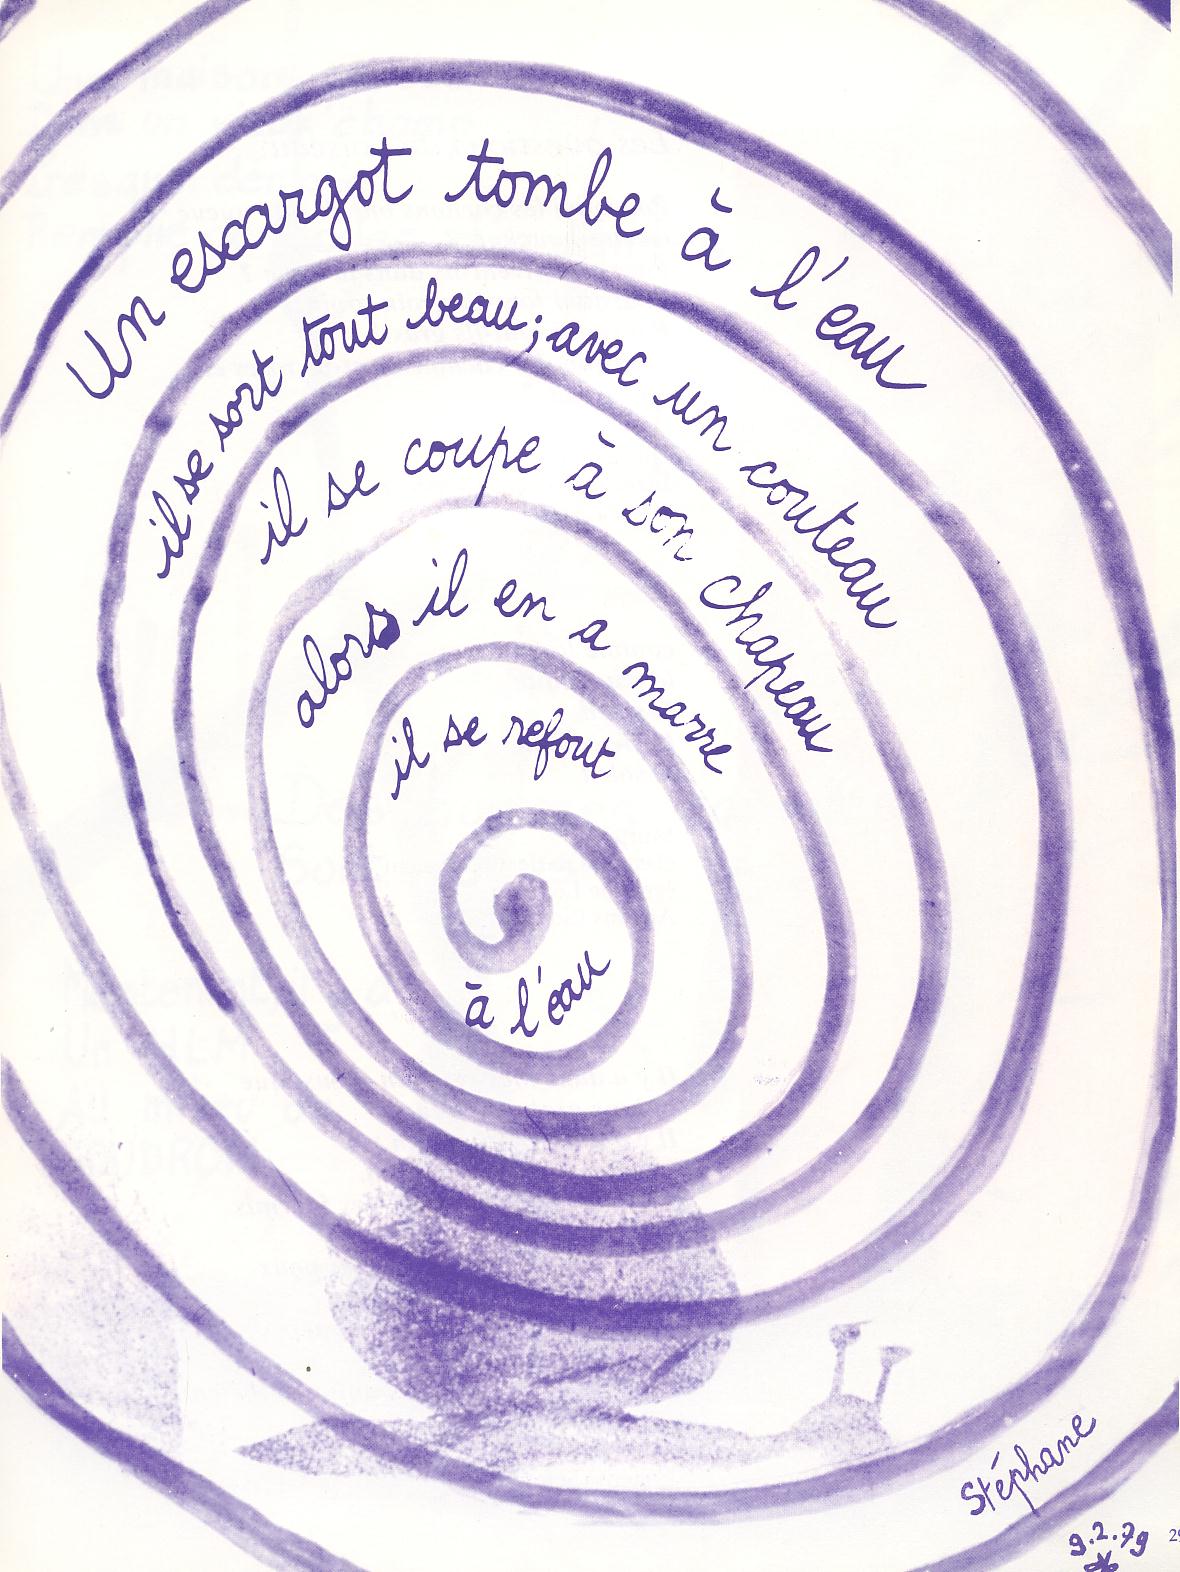 Un escargot tombe à l'eau
il se sort tout beau; avec un couteau
il se coupe à son chapeau
alors il en a marre
il se refout
à l'eau
Stéphane
9.2.79